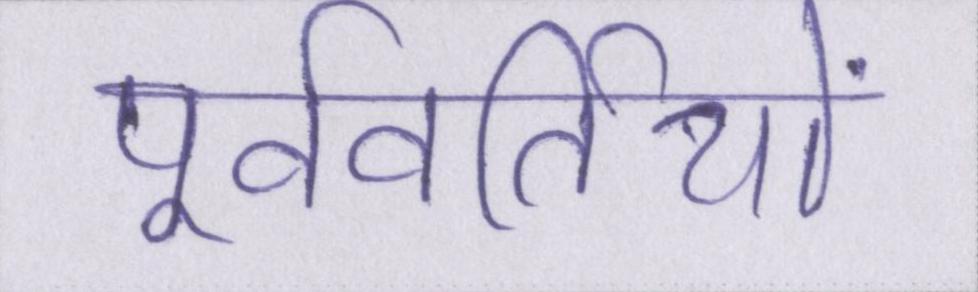 पूर्ववर्तियों